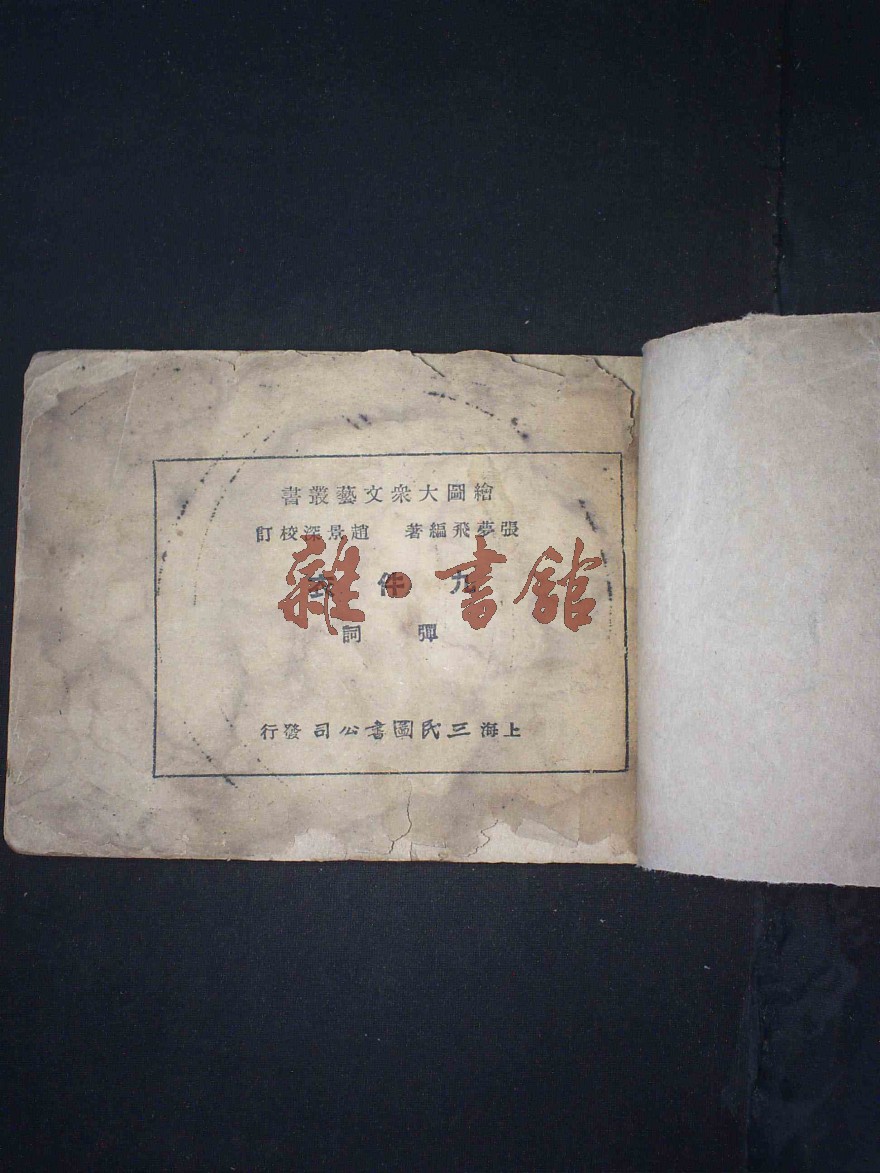 繪圖大衆文藝叢書
張夢飛編著　趙景深校訂
九件衣
彈詞
上海三民圖書公司發行
雜·書館